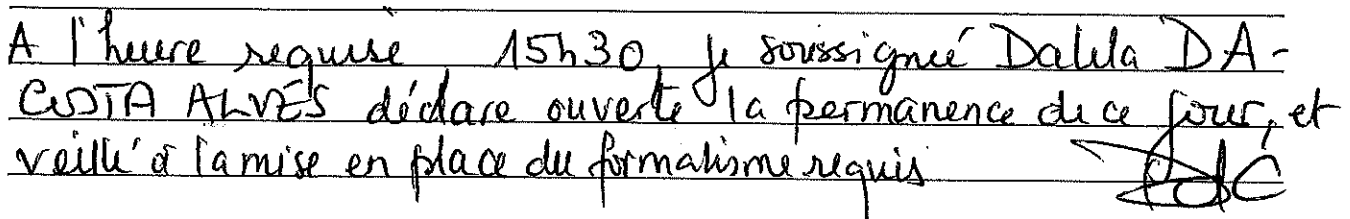 A l'heure requise 15h30, je soussignée Dalila DA-
COSTA ALVES déclare ouverte la permanence de ce jour, et
veillé à la mise en place du formalisme requis